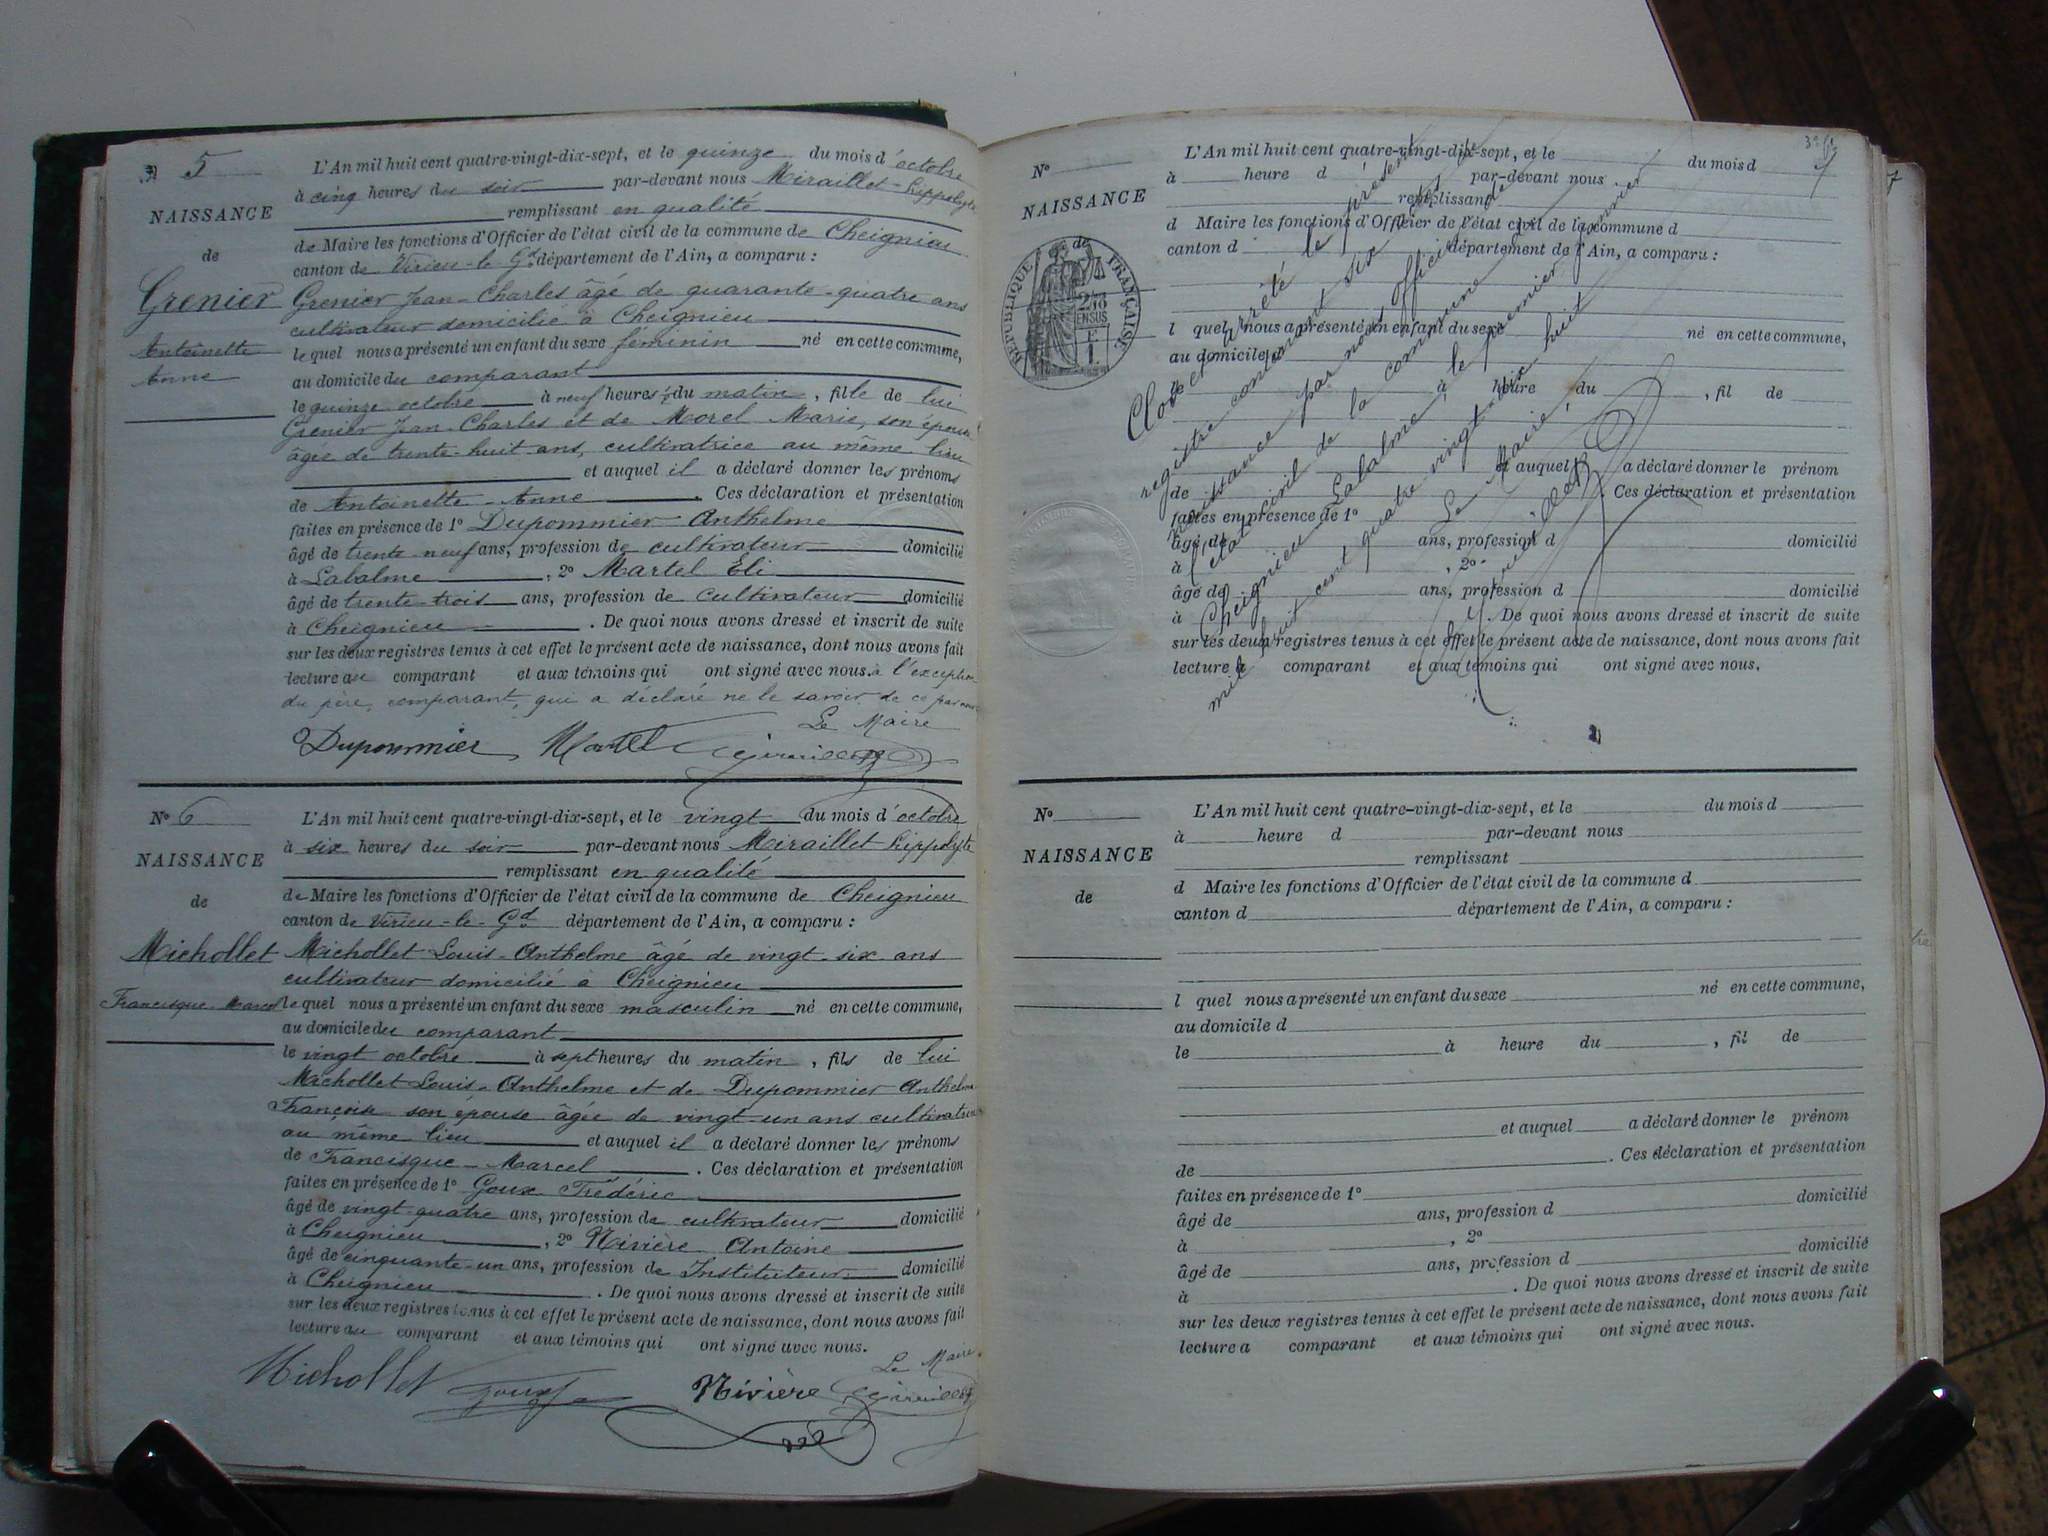 N 5
NAISSANCE
de
Grenier
Antoinette
Anne
L'An mil huit cent quatre-vingt-dix-sept, et le quinze du mois d'octobre
à cinq heures du soir par-devant nous Miraillet Hippolyte
remplissant en qualité
de Maire les fonctions d'Officier de l'état civil de la commune de Cheignieu
canton de Virieu-le-Gd département de l'Ain, a comparu :
Grenier Jean-Charles âgé de quarante-quatre ans
cultivateur domicilié à Cheignieu
lequel nous a présenté un enfant du sexe féminin né en cette commune,
au domicile du comparant
le quinze octobre à neuf heures du matin, fille de lui
Grenier Jean-Charles et de Morel Marie, son épouse
âgée de trente-huit ans, cultivatrice au même lieu
et auquel il a déclaré donner les prénoms
de Antoinette-Anne. Ces déclaration et présentation
faites en présence de 1º Dupommier Anthelme
âgé de trente-neuf ans, profession de cultivateur domicilié
à Labalme, 2º Martel Éli
âgé de trente-trois ans, profession de cultivateur domicilié
à Cheignieu. De quoi nous avons dressé et inscrit de suite
sur les deux registres tenus à cet effet le présent acte de naissance, dont nous avons fait
lecture au comparant et aux témoins qui ont signé avec nous. à l'exception
du père, comparant, qui a déclaré ne le savoir de ce par nous
Le Maire
Dupommier Martel
Nº 6
NAISSANCE
de
Michollet
Francisque-Marcel
L'An mil huit cent quatre-vingt-dix-sept, et le vingt du mois d'octobre
à six heures du soir par-devant nous Miraillet Hippolyte
remplissant en qualité
de Maire les fonctions d'Officier de l'état civil de la commune de Cheignieu
canton de Virieu-le-Gd département de l'Ain, a comparu :
Michollet Louis-Anthelme âgé de vingt-six ans
cultivateur domicilié à Cheignieu
lequel nous a présenté un enfant du sexe masculin né en cette commune,
au domicile du comparant
le vingt octobre à sept heures du matin, fils de lui
Michollet Louis-Anthelme et de Dupommier Anthelme
Françoise son épouse âgée de vingt-un ans cultivatrice
au même lieu et auquel il a déclaré donner les prénoms
de Francisque-Marcel. Ces déclaration et présentation
faites en présence de 1º Goux Frédéric
âgé de vingt-quatre ans, profession de cultivateur domicilié
à Cheignieu, 2º Nivière Antoine
âgé de cinquante-un ans, profession de Instituteur domicilié
à Cheignieu. De quoi nous avons dressé et inscrit de suite
sur les deux registres tenus à cet effet le présent acte de naissance, dont nous avons fait
lecture au comparant et aux témoins qui ont signé avec nous.
Le Maire
Michollet Goux Nivière
Nº
NAISSANCE
de
RÉPUBLIQUE FRANÇAISE
L'An mil huit cent quatre-vingt-dix-sept, et le du mois d
à heure d par-devant nous
remplissant
d Maire les fonctions d'Officier de l'état civil de la commune d
canton d département de l'Ain, a comparu :
l quel nous a présenté un enfant du sexe né en cette commune,
au domicile
le à heure du , fil de
et auquel a déclaré donner le prénom
de . Ces déclaration et présentation
faites en présence de 1º
âgé de ans, profession d domicilié
à , 2º
âgé de ans, profession d domicilié
à . De quoi nous avons dressé et inscrit de suite
sur les deux registres tenus à cet effet le présent acte de naissance, dont nous avons fait
lecture a comparant et aux témoins qui ont signé avec nous.
Clos et arrêté le présent
registre contenant six actes de
naissance par nous officier de
l'état civil de la commune de
Cheignieu-Labalme, le premier janvier
mil huit cent quatre-vingt-dix-huit
Le Maire,
Nº
NAISSANCE
de
L'An mil huit cent quatre-vingt-dix-sept, et le du mois d
à heure d par-devant nous
remplissant
d Maire les fonctions d'Officier de l'état civil de la commune d
canton d département de l'Ain, a comparu :
l quel nous a présenté un enfant du sexe né en cette commune,
au domicile d
le à heure du , fil de
et auquel a déclaré donner le prénom
de . Ces déclaration et présentation
faites en présence de 1º
âgé de ans, profession d domicilié
à , 2º
âgé de ans, profession d domicilié
à . De quoi nous avons dressé et inscrit de suite
sur les deux registres tenus à cet effet le présent acte de naissance, dont nous avons fait
lecture a comparant et aux témoins qui ont signé avec nous.